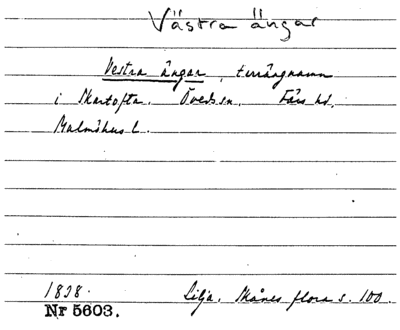 Västra ängar
Vestra ängar, terrängnamn
i Skartofta. Öveds sn. Färs hd.
Malmöhus l.
1838. Lilja. Skånes flora s. 100.
Nr 5603.